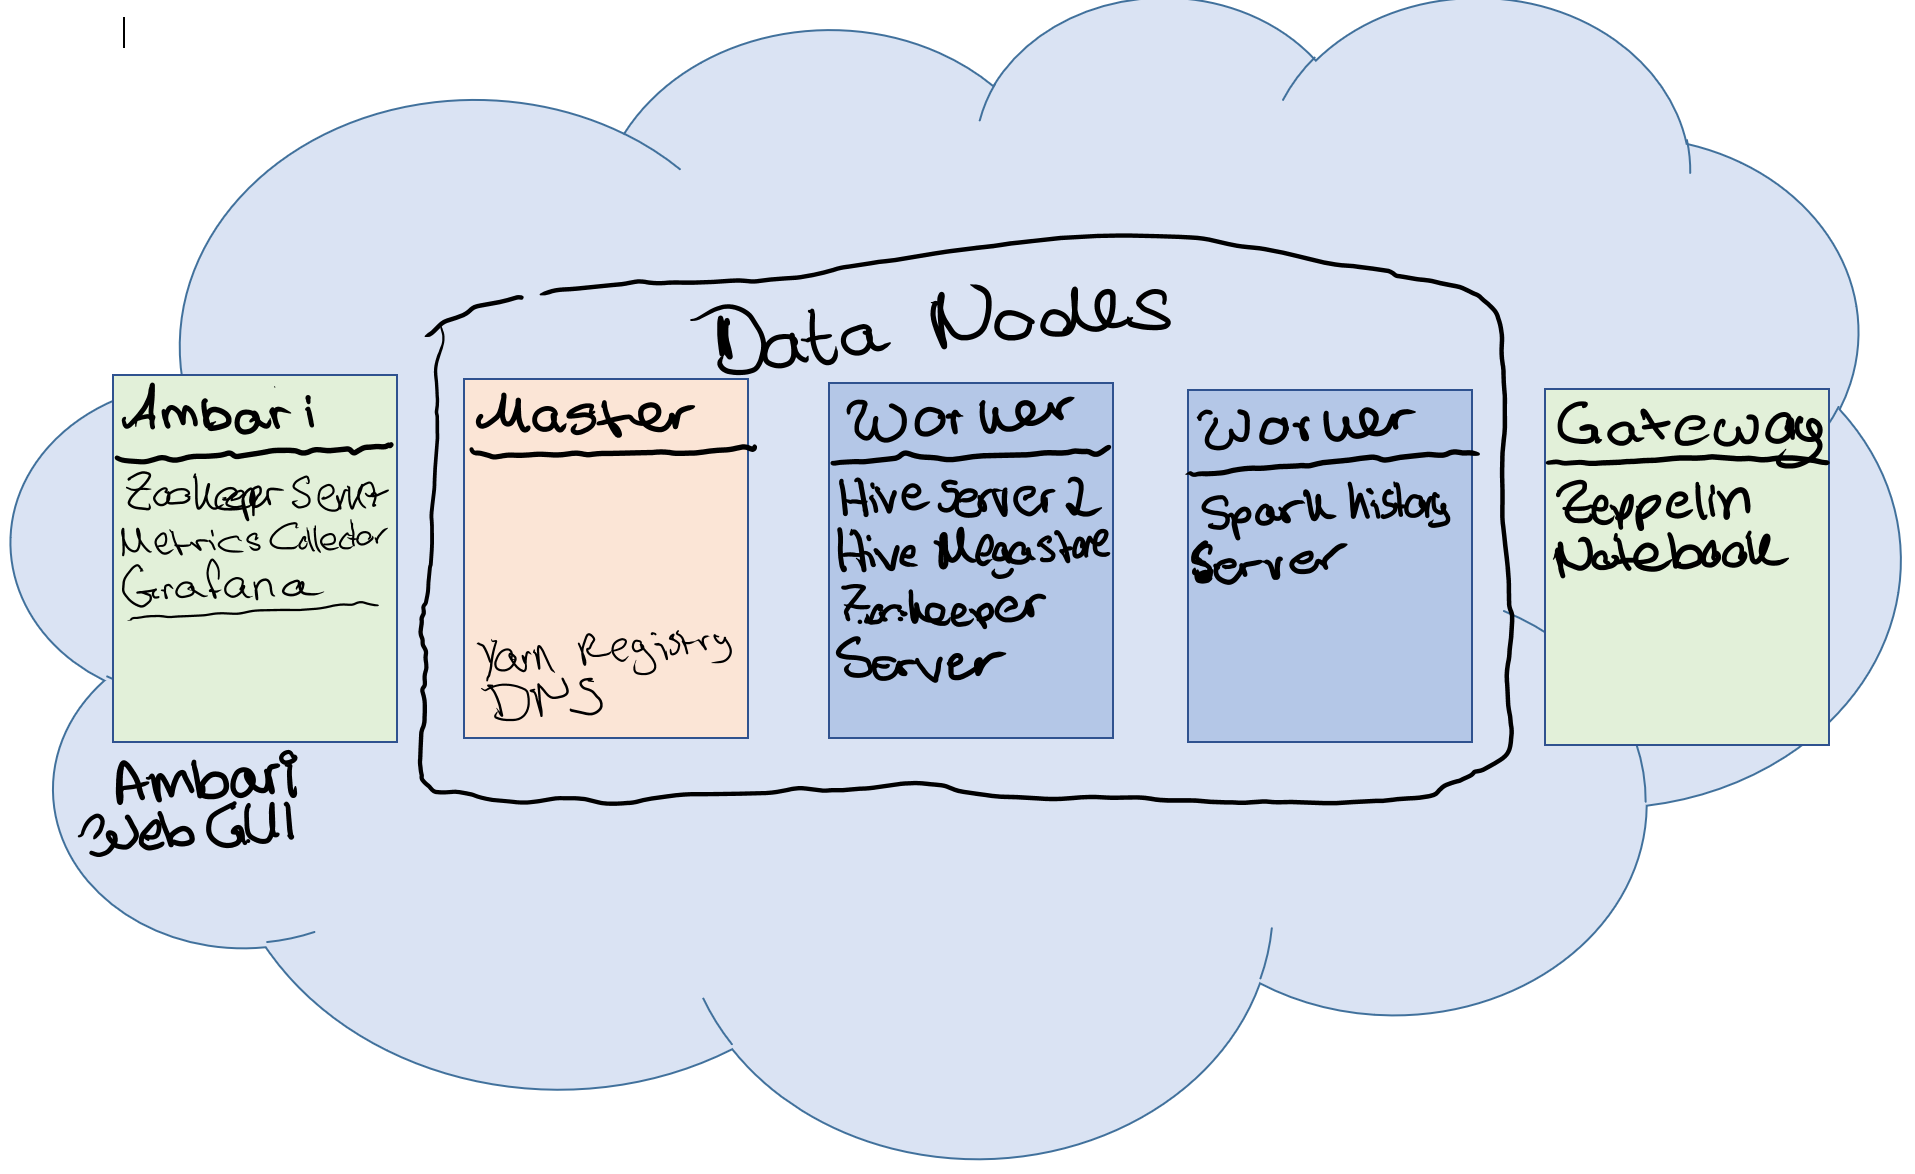 Data Nodes
Ambari
Zookeeper Server
Metrics Collector
Grafana
Ambari
Web GUI
Master
Yarn Registry
DNS
Worker
Hive Server 2
Hive Megastore
Zookeeper
Server
Worker
Spark history
Server
Gateway
Zeppelin
Notebook